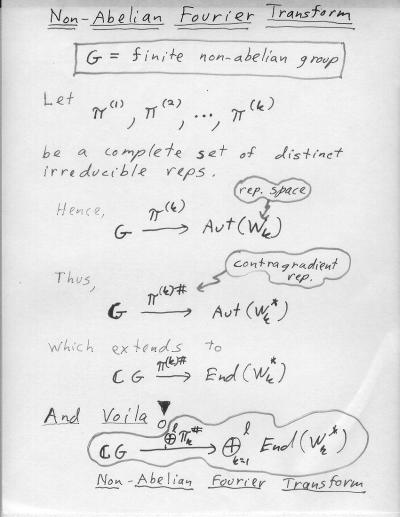 Non-Abelian Fourier Transform
G = finite non-abelian group
Let π^(1), π^(2), ..., π^(k)
be a complete set of distinct
irreducible reps.
rep. space
Hence, G π^(k) → Aut(W_k)
contragradient
rep.
Thus, G π^(k)# → Aut(W_k^*)
which extends to
ℂG π^(k)# → End(W_k^*)
And Voila
ℂG ⊕π_k^# → ⊕_{k=1}^l End(W_k^*)
Non-Abelian Fourier Transform